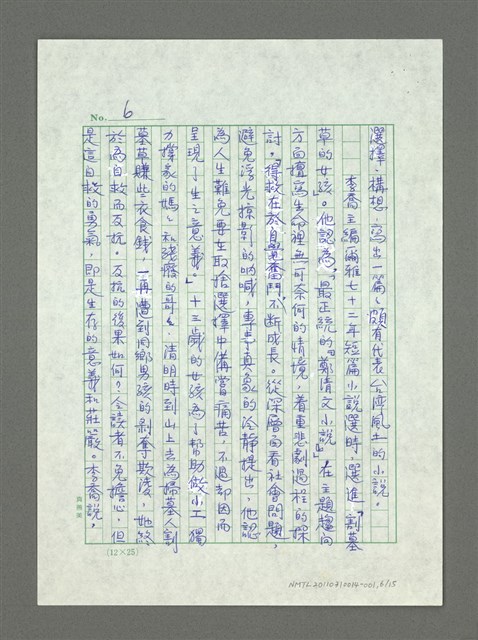 No. 6
選擇、構想,寫出一篇篇頗有代表台灣風土的小說。
李喬主編爾雅七十二年短篇小說選時,選進「割墓
草的女孩」。他認為「最正統的『鄭清文小說』在主題趨向
方面擅寫生命裡無可奈何的情境,着重悲劇過程的探
討。『得救在於自覺奮鬥』,不斷成長。從深層面看社會問題,
避免浮光掠影的吶喊,專專真象的冷靜提出,他認
為人生難免要在取捨選擇中備嘗痛苦,不過却因而
呈現了生之意義。」十三歲的女孩為了幫助做小工獨
力撐家的媽媽和殘廢的哥哥,清明時到山上去為掃墓人割
墓草賺些衣食錢,一再遭到同鄉男孩的剝奪欺凌,她終
於為自救而反抗。反抗的後果如何?令讀者不免擔心。但
是這自救的勇氣,即是生存的意義和莊嚴。李喬說,
(12×25)
NMTL20110310014-001,6/15